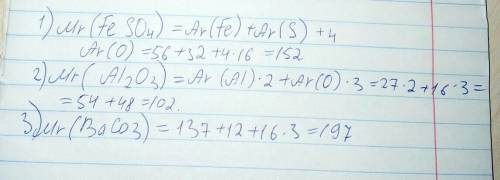 1) Mr(FeSO4) = Ar(Fe) + Ar(S) + 4
Ar(O) = 56 + 32 + 4·16 = 152
2) Mr(Al2O3) = Ar(Al)·2 + Ar(O)·3 = 27·2 + 16·3 =
= 54 + 48 = 102.
3) Mr(BaCO3) = 137 + 12 + 16·3 = 197